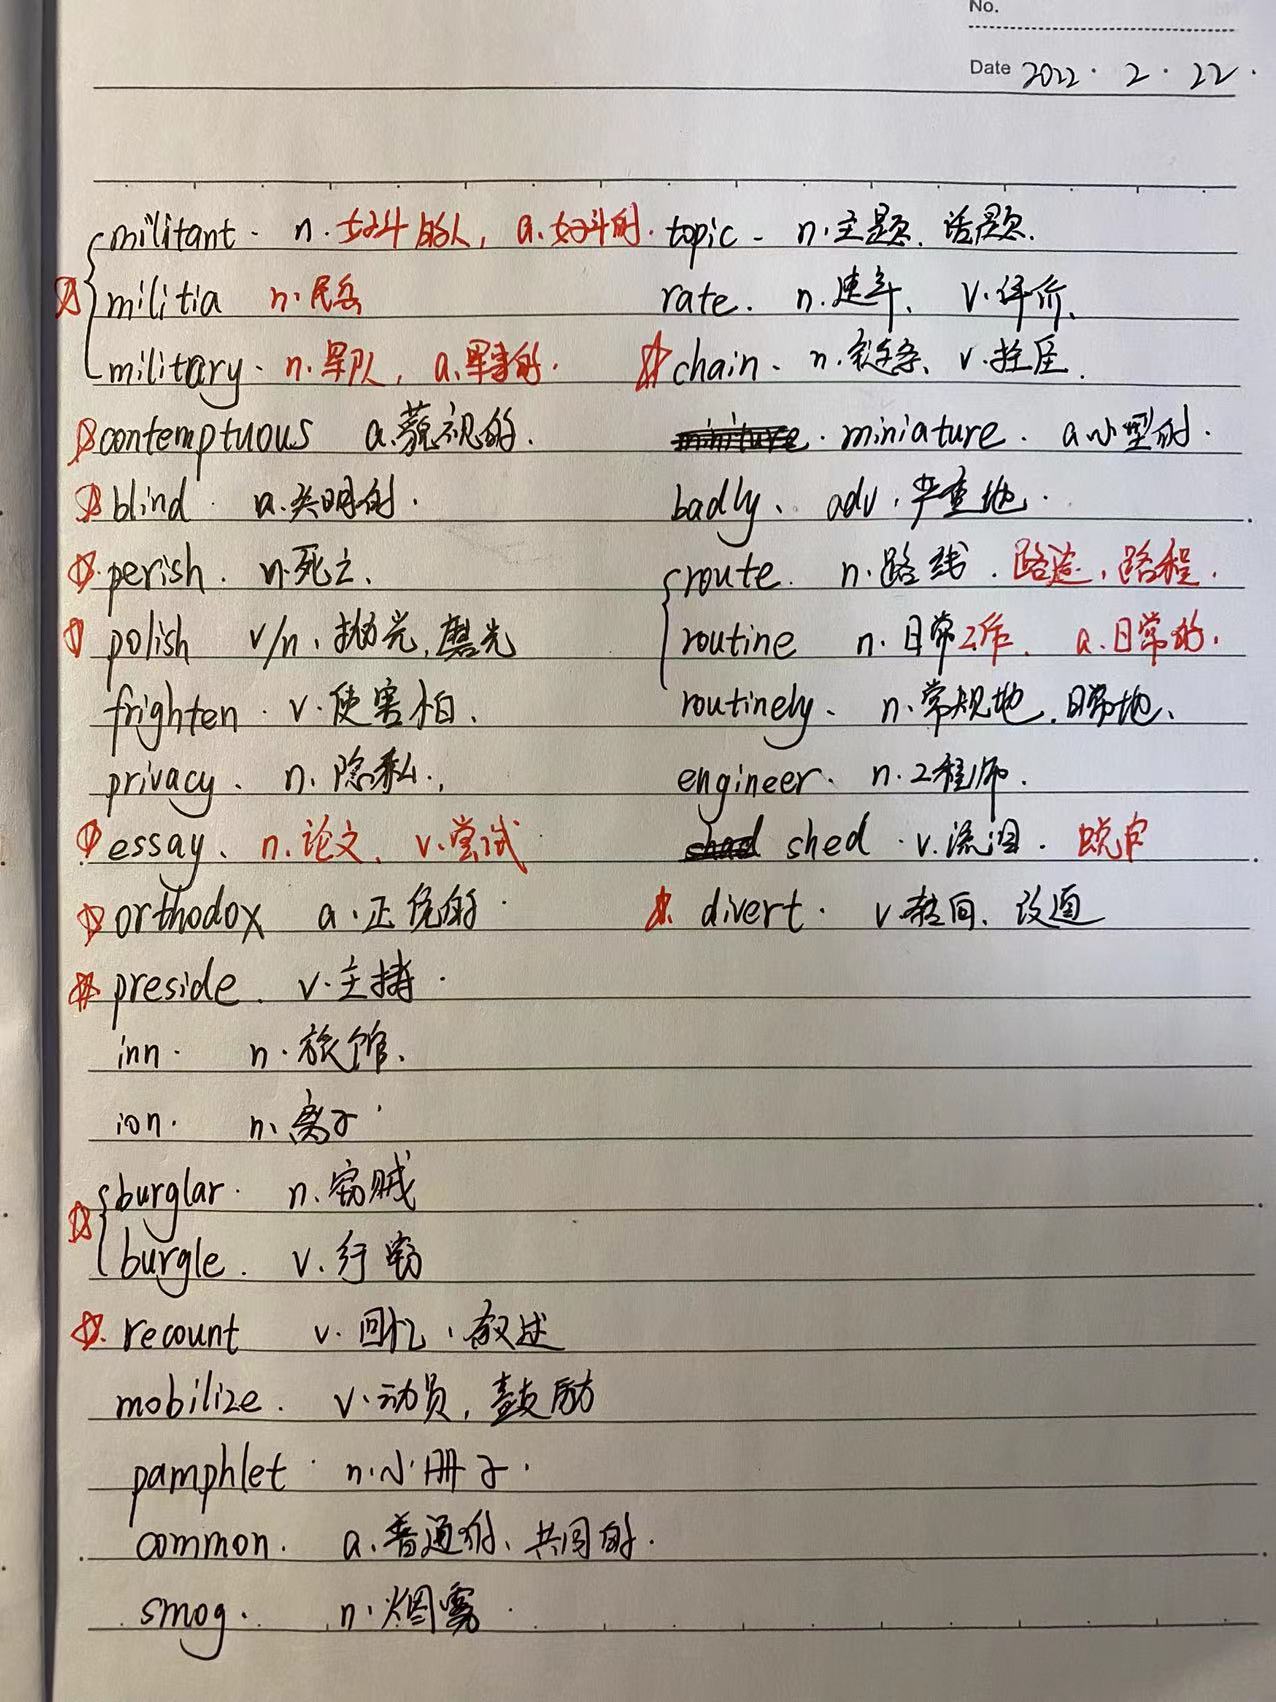 No.
Date 2022.2.22.
militant. n.好斗的人, a.好斗的.
militia n.民兵
military. n.军队, a.军事的.
contemptuous a.藐视的.
blind a.失明的.
perish. n.死亡.
polish v/n.抛光,磨光
frighten. v.使害怕.
privacy. n.隐私.
essay. n.论文. v.尝试
orthodox a.正统的.
preside. v.主持.
inn. n.旅馆.
ion. n.离子.
burglar. n.窃贼
burgle. v.行窃
recount v.回忆,叙述
mobilize. v.动员,鼓励
pamphlet n.小册子.
common. a.普通的、共同的.
smog. n.烟雾.
topic - n.主题、话题.
rate. n.速率、 v.评价.
chain. n.链条、 v.拴住.
miniature. a.小型的.
badly. adv.严重地.
route. n.路线.路途,路程.
routine n.日常工作. a.日常的.
routinely. n.常规地.日常地.
engineer. n.工程师.
shed. v.流泪. 蜕皮
divert. v.转向、改道